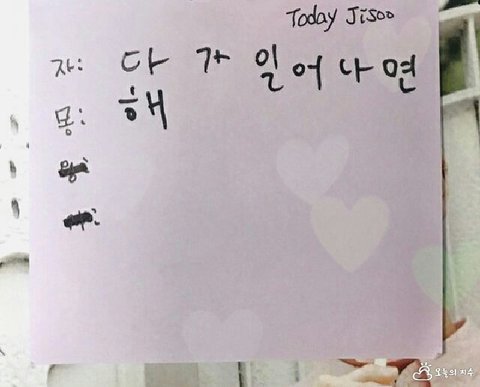 Today Jisoo
자: 다가일어나면
몽: 해
오늘의 지수